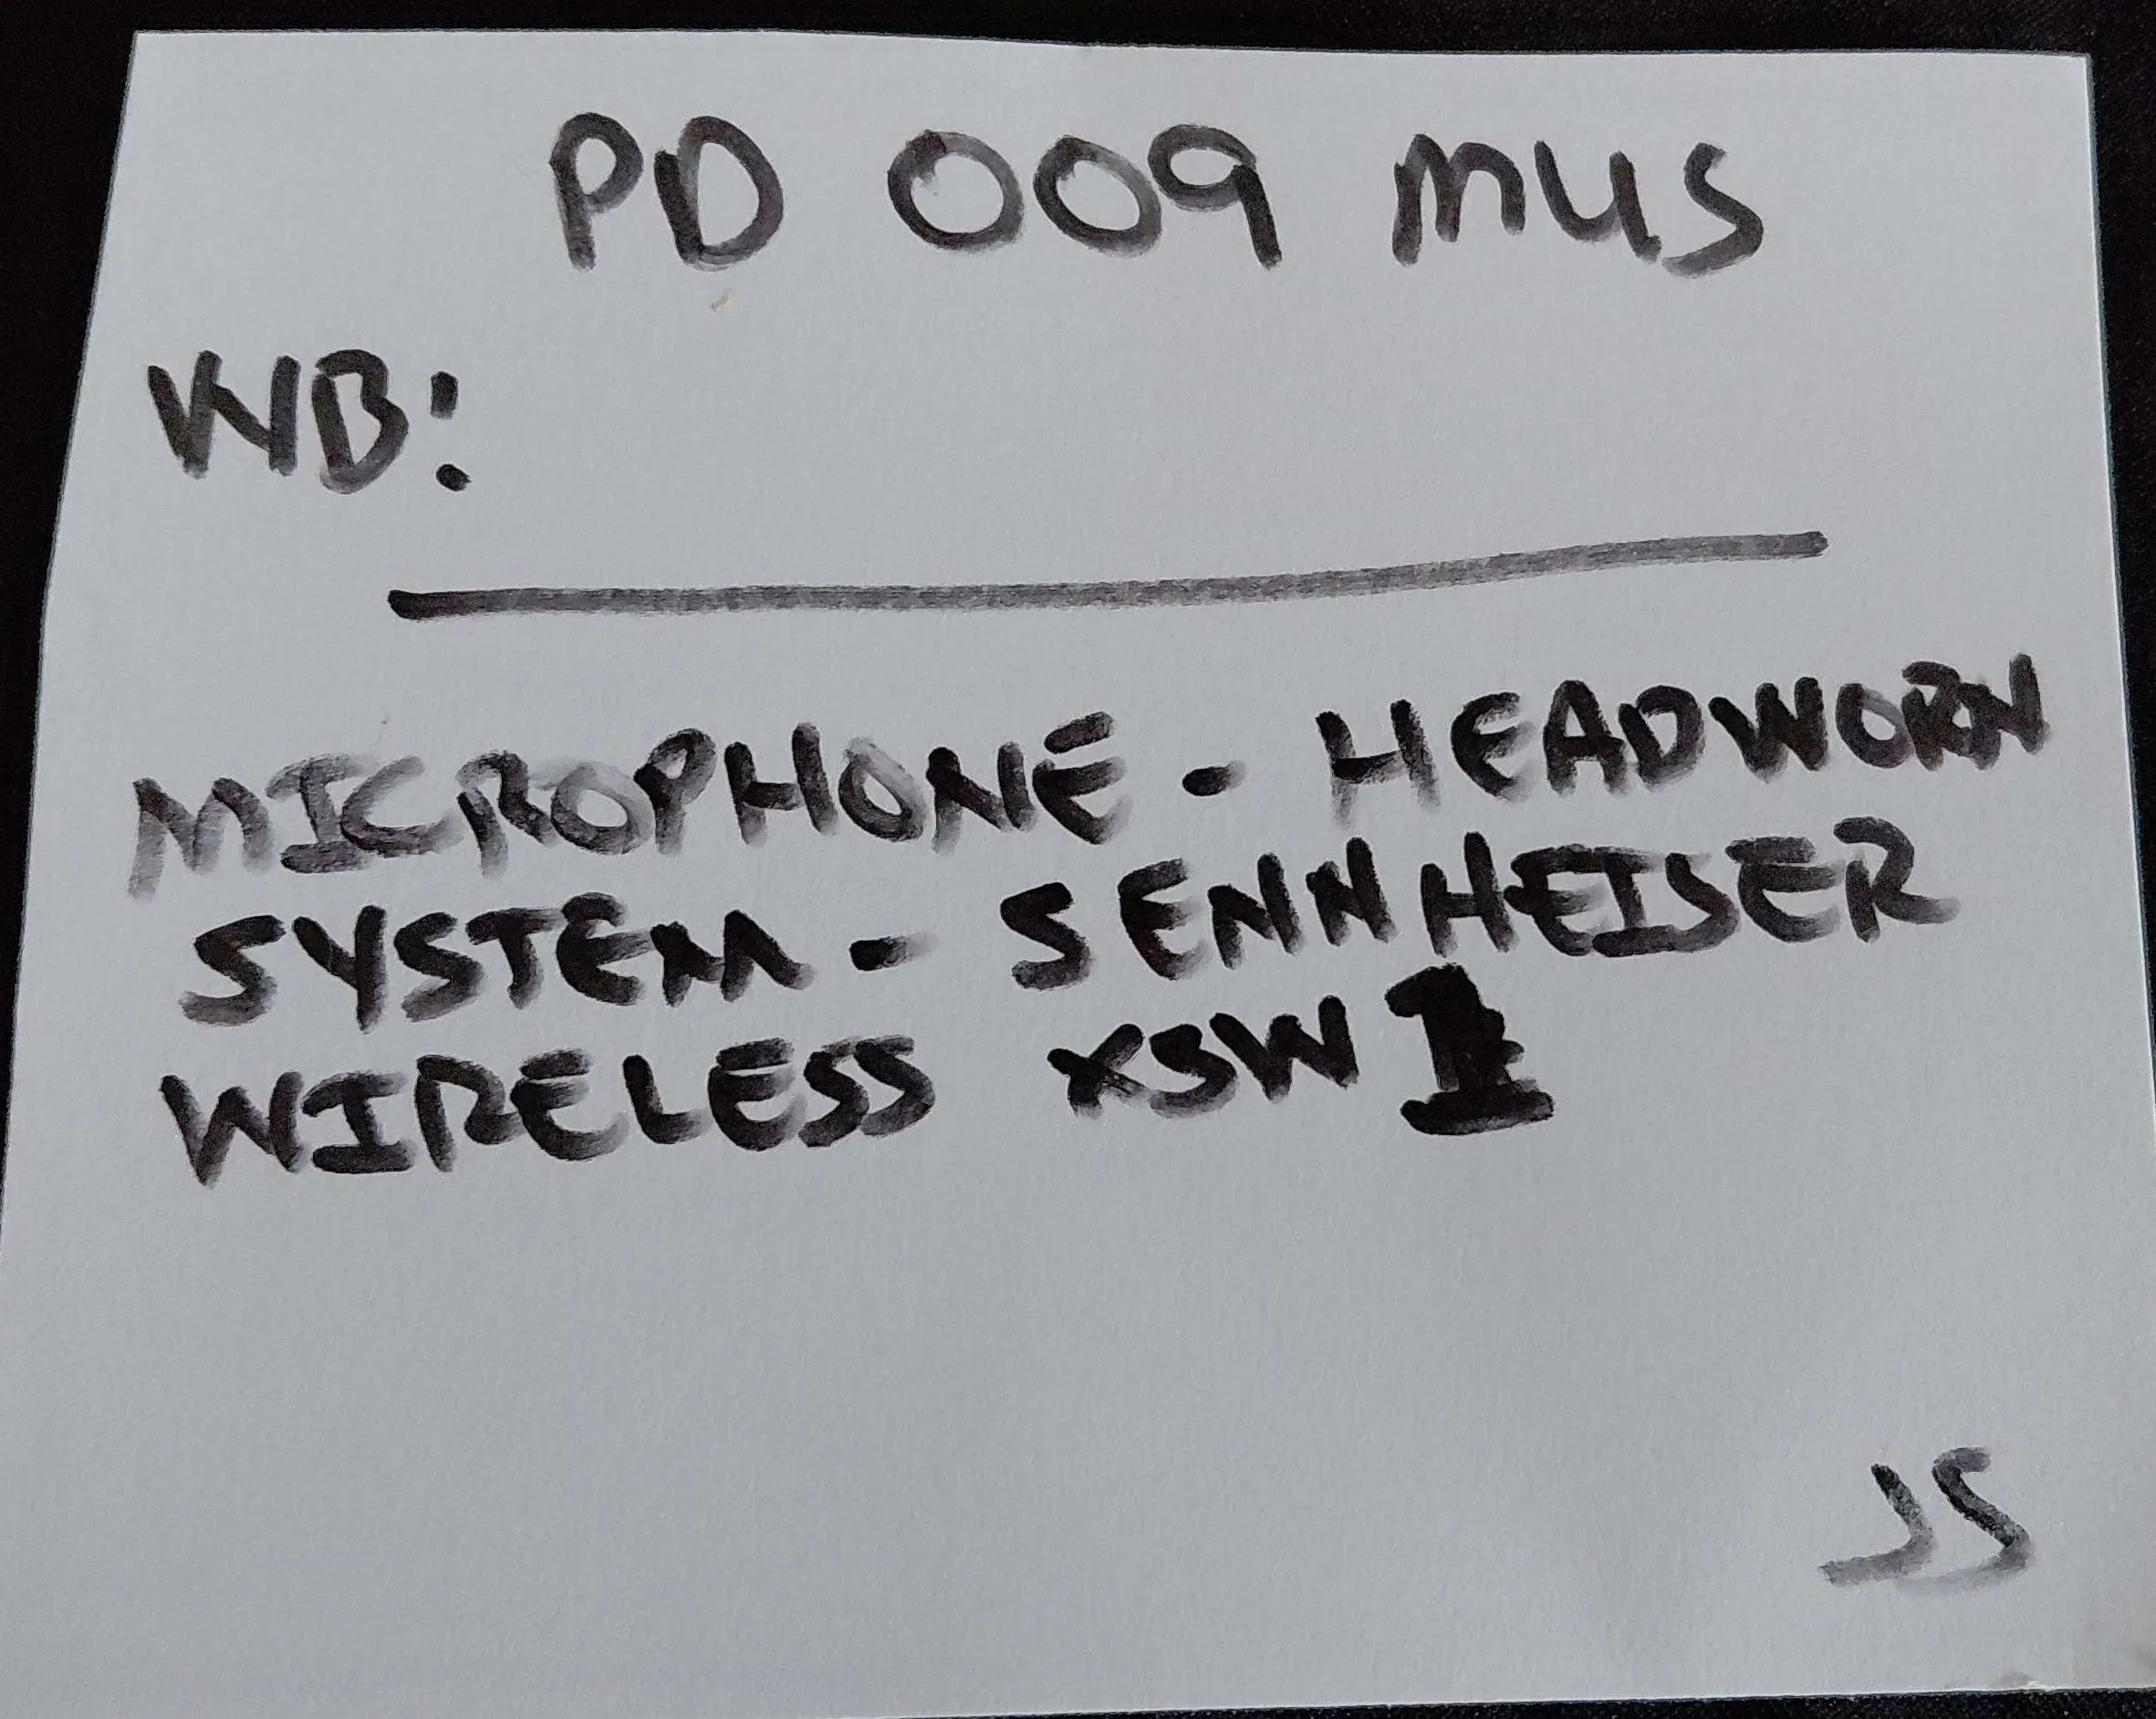 PD 009 MUS
WB:
MICROPHONE - HEADWORN
SYSTEM - SENNHEISER
WIRELESS XSW 1
JS